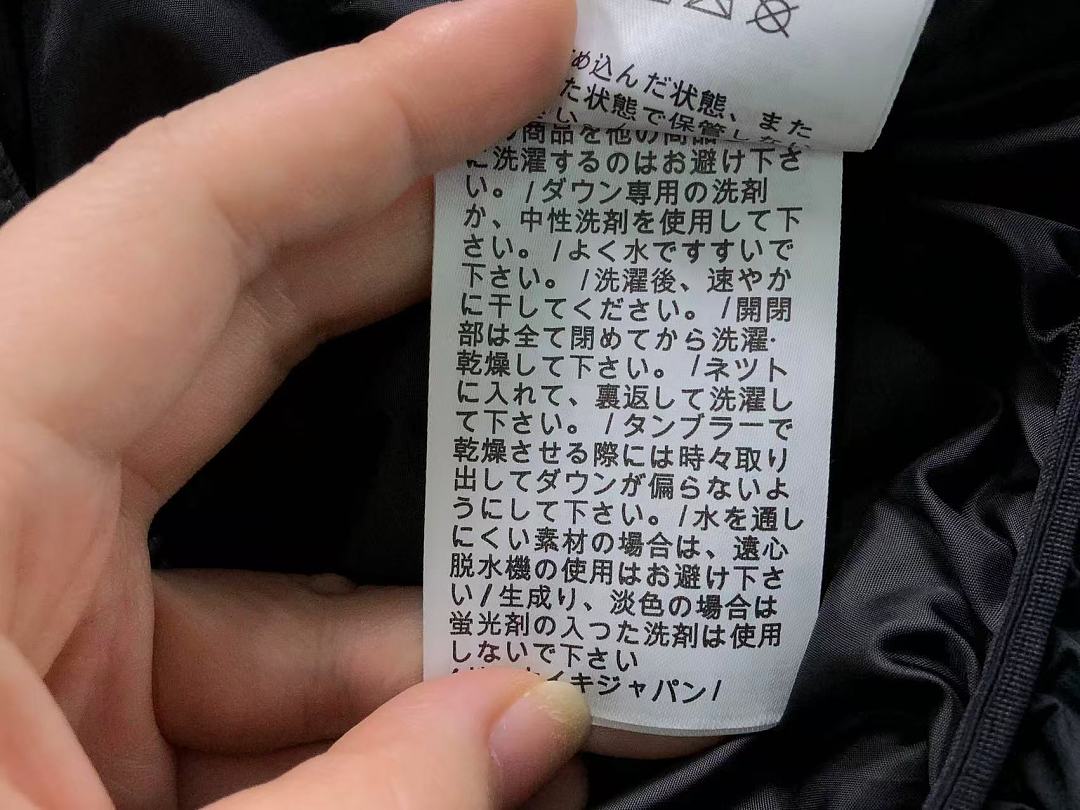 め込んだ状態、また
た状態で保管し
商品を他の商品
に洗濯するのはお避け下さ
い。/ダウン専用の洗剤
か、中性洗剤を使用して下
さい。/よく水ですすいで
下さい。/洗濯後、速やか
に干してください。/開閉
部は全て閉めてから洗濯·
乾燥して下さい。/ネツト
に入れて、裏返して洗濯し
て下さい。/タンブラーで
乾燥させる際には時々取り
出してダウンが偏らないよ
うにして下さい。/水を通し
にくい素材の場合は、遠心
脱水機の使用はお避け下さ
い/生成り、淡色の場合は
蛍光剤の入つた洗剤は使用
しないで下さい
イキジャパン/